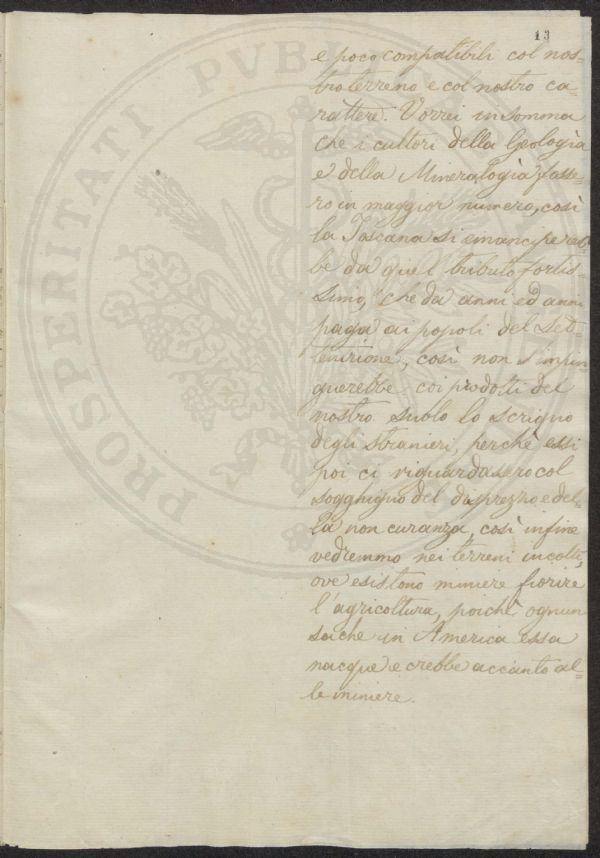 13
e poco compatibili col nos=
tro terreno e col nostro ca=
rattere. Vorrei in somma
che i cultori della Geologia
e della Mineralogia fosse=
ro in maggior numero, così
la Toscana si emancipereb=
be da quel tributo fortis=
simo, che da anni ed anni
paga ai popoli del Set=
tentrione, così non s'impin=
guerebbe coi prodotti del
nostro suolo lo scrigno
degli stranieri, perchè essi
poi ci riguardassero col
sogghigno del disprezzo e del=
la non curanza, così infine
vedremmo nei terreni incolti,
ove esistono miniere fiorire
l'agricoltura, poichè ognun
sa che in America essa
nacque e crebbe accanto al=
le miniere.
PROSPERITATI PVBL